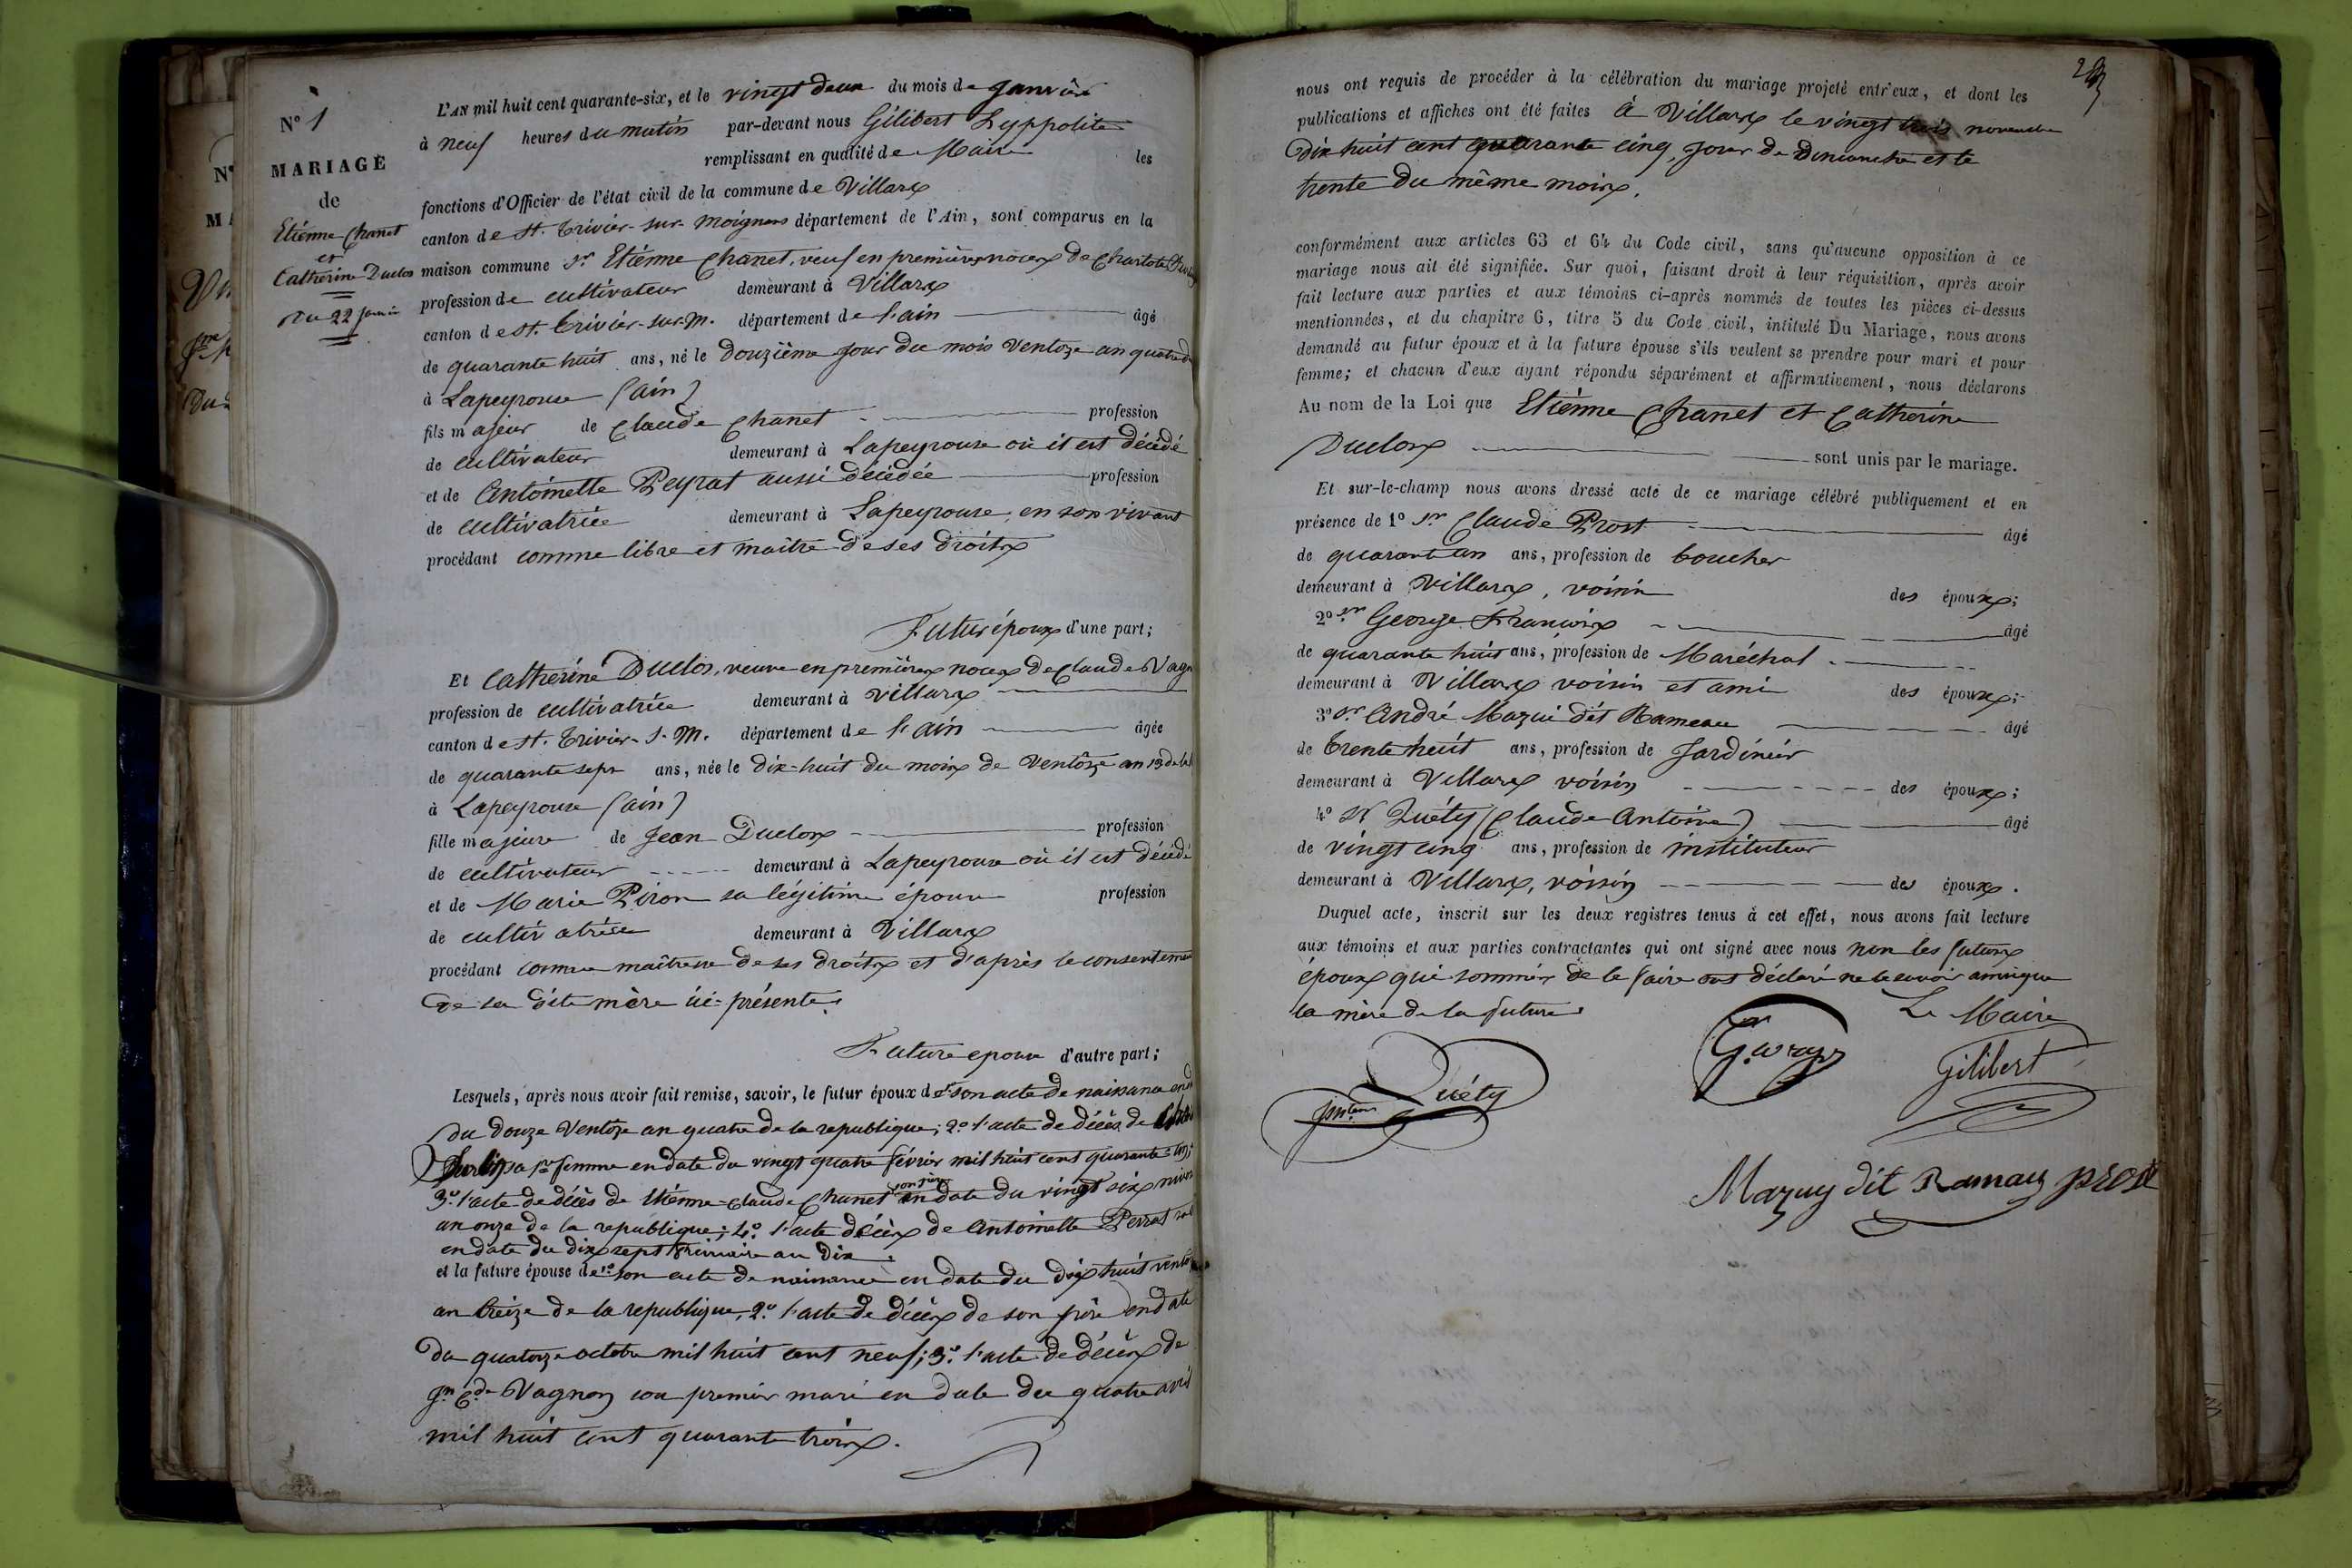 N° 1
MARIAGE
de
Etienne Chanet
et
Catherine Duclos
Du 22 janvier
L'AN mil huit cent quarante-six, et le vingt deux du mois de janvier
à neuf heures du matin par-devant nous Gilibert Hyppolite
remplissant en qualité de Maire les
fonctions d'Officier de l'état civil de la commune de Villars
canton de St. Trivier-sur-Moignans département de l'Ain, sont comparus en la
maison commune Sr Etienne Chanet, veuf en premières noces de
profession de cultivateur demeurant à Villars
canton de St. Trivier-sur-M. département de l'ain âgé
de quarante huit ans, né le douzième jour du mois Ventose an quatre
à Lapeyrouse (ain)
fils majeur de Claude Chanet profession
de cultivateur demeurant à Lapeyrouse où il est décédé
et de Antoinette Peyrat aussi décédée profession
de cultivatrice demeurant à Lapeyrouse, en son vivant
procédant comme libre et maître de ses droits
Futur époux d'une part;
Et Catherine Duclos, veuve en premières noces de Claude
profession de cultivatrice demeurant à Villars
canton de St. Trivier-s-M. département de l'ain âgée
de quarante sept ans, née le dix-huit du mois de Ventôse an 13
à Lapeyrouse (ain)
fille majeure de Jean Duclos profession
de cultivateur demeurant à Lapeyrouse où il est décédé
et de Marie Piron sa légitime épouse profession
de cultivatrice demeurant à Villars
procédant comme maîtresse de ses droits et d'après le consentement
de sa dite mère ici présente.
Future epouse d'autre part;
Lesquels, après nous avoir fait remise, savoir, le futur époux de son acte de naissance
du douze Ventose an quatre de la republique; 2° l'acte de décès de
sa 1re femme en date du vingt quatre février mil huit cent quarante
3° l'acte de décès de Etienne-Claude Chanet son père en date du vingt six
an onze de la republique; 4° l'acte décès de Antoinette Perrat
en date du dix sept frimaire an dix.
et la future épouse de 1° son acte de naissance en date du dix huit
an treize de la republique, 2° l'acte de décès de son père en date
du quatorze octobre mil huit cent neuf; 3° l'acte de décès de
Jn Cde Vagnon son premier mari en date du quatre avril
mil huit cent quarante trois.
nous ont requis de procéder à la célébration du mariage projeté entr'eux, et dont les
publications et affiches ont été faites à Villars le vingt trois novembre
dix huit cent quarante cinq, jour de Dimanche et le
trente du même mois.
conformément aux articles 63 et 64 du Code civil, sans qu'aucune opposition à ce
mariage nous ait été signifiée. Sur quoi, faisant droit à leur réquisition, après avoir
fait lecture aux parties et aux témoins ci-après nommés de toutes les pièces ci-dessus
mentionnées, et du chapitre 6, titre 5 du Code civil, intitulé Du Mariage, nous avons
demandé au futur époux et à la future épouse s'ils veulent se prendre pour mari et pour
femme; et chacun d'eux ayant répondu séparément et affirmativement, nous déclarons
Au nom de la Loi que Etienne Chanet et Catherine
Duclos sont unis par le mariage.
Et sur-le-champ nous avons dressé acte de ce mariage célébré publiquement et en
présence de 1° Sr Claude Prost âgé
de quarante un ans, profession de boucher
demeurant à Villars, voisin des époux;
2° Sr George François âgé
de quarante huit ans, profession de Maréchal
demeurant à Villars voisin et ami des époux;
3° Sr André Mazui dit Rameau âgé
de trente huit ans, profession de Jardinier
demeurant à Villars voisin des époux;
4° Sr Quéty (Claude Antoine) âgé
de vingt cinq ans, profession de instituteur
demeurant à Villars, voisin des époux.
Duquel acte, inscrit sur les deux registres tenus à cet effet, nous avons fait lecture
aux témoins et aux parties contractantes qui ont signé avec nous non les futurs
époux qui sommés de le faire ont déclaré ne le savoir ainsi que
la mère de la future.
Le Maire
Quéty
Gilibert
Mazuy dit Ramau prost